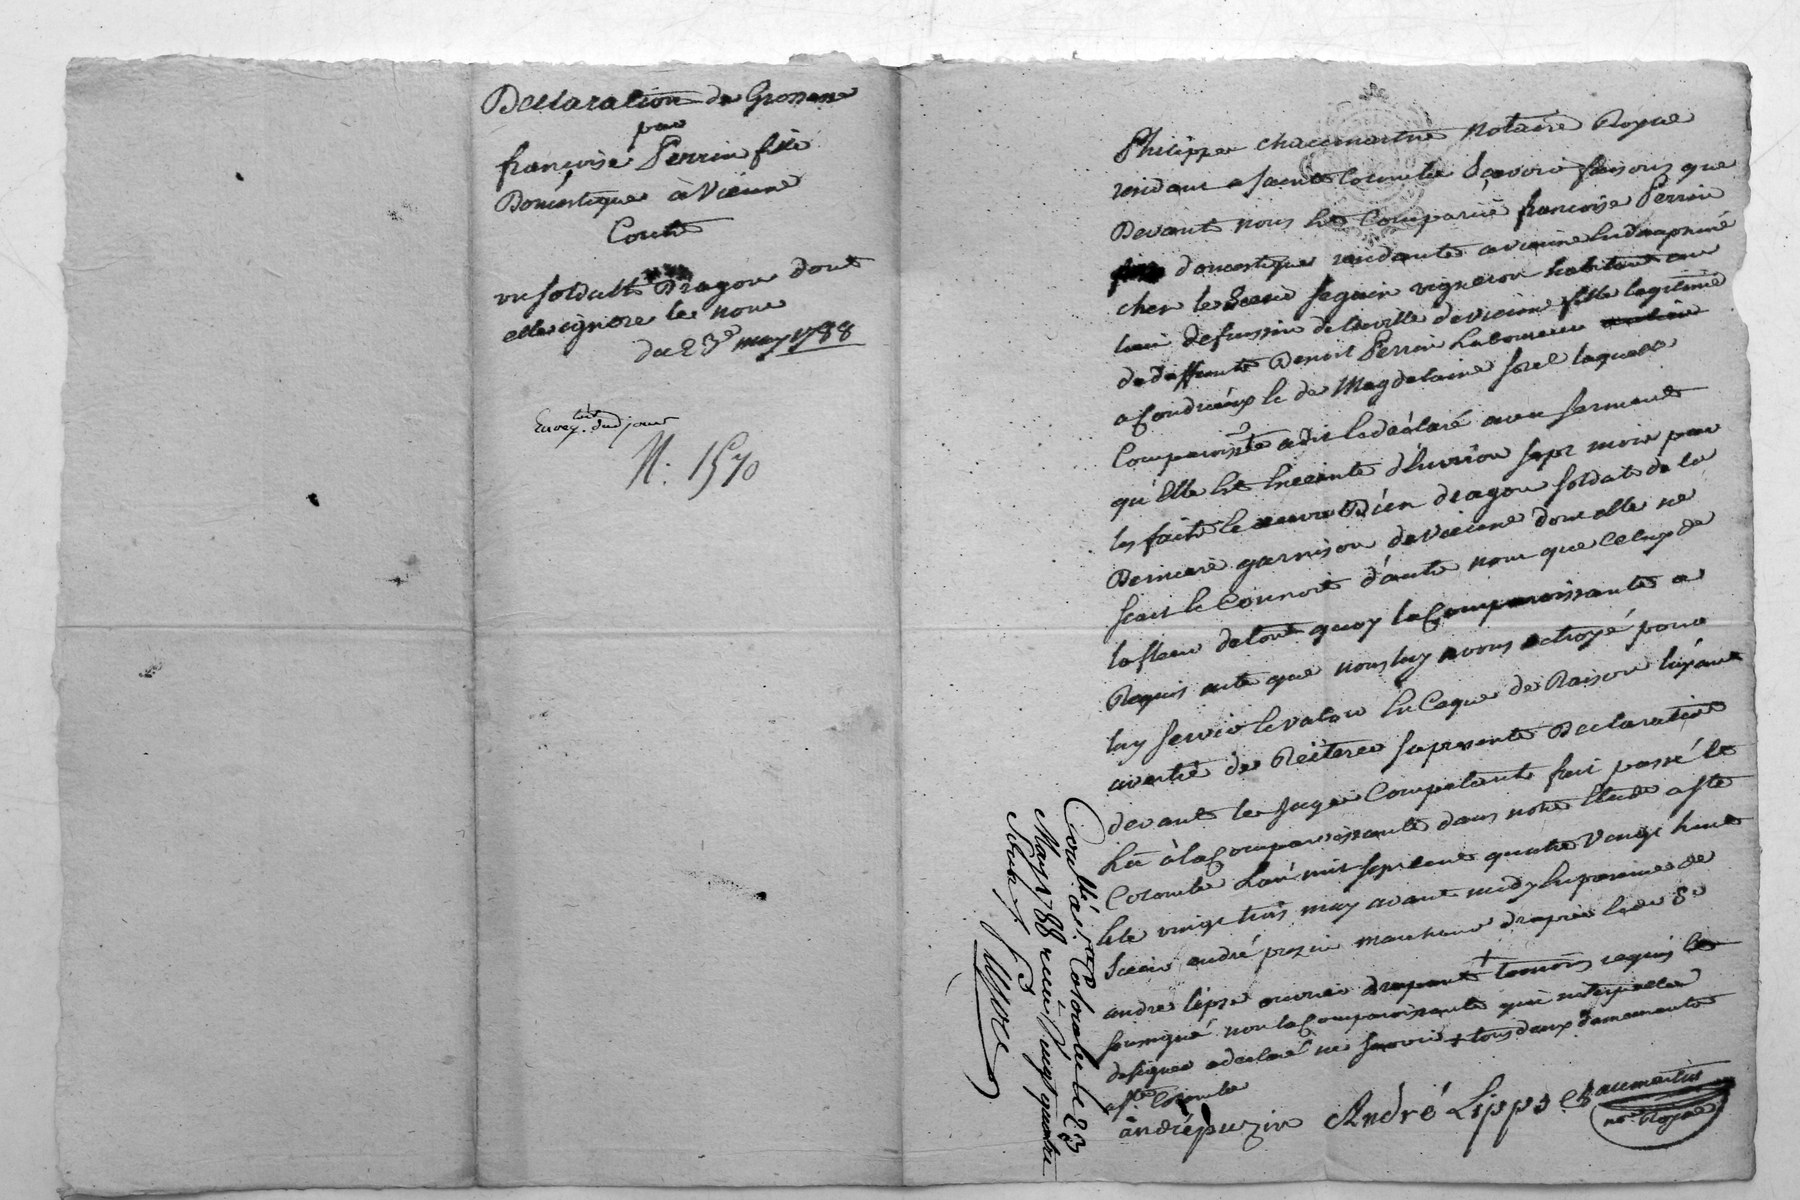 Declaration de Grossesse
par
françoise Perrin fille
Domestique à Vienne
Contre
un soldatt Dragon dont
elle ignore le nom
du 23e may 1788
Envoy. dud jour
N: 1570
Philippe chaumartin notaire Royal
residant a sainte Colombe Sçavoir faisons que
Devant nous est Comparüe françoise Perrin
domestique residante a vienne en dauphiné
chez le Sieur seguin vigneron habitant au
lieu de fuissin de la ville de vienne fille legitime
de deffunt Benoit Perrin Laboureur
a Condrieux et de Magdelaine sorel laquelle
Comparoiste a dit et déclaré avec serment
qu'Elle Est Enceinte d'Environ sept mois par
les faits et œuvre D'un dragon soldat de la
Derniere garnison de Vienne dont elle ne
scait et Connoit d'autre nom que celuy de
lafleur de tout quoy la Comparoissante a
Requis acte que nous luy avons octroyé pour
luy servir et valoir En Cas que de Raison l'ayant
avertie de Réiterer sa presente Declaration
devant le juge Competant fait passé et
lu à la Comparoissante dans notre Etude a ste
Colombe L'an mil sept cent quatre vingt huit
et le vingt trois may avant midy En presence de
Sieur andré puzin marchand drapier et de Sr
andre lipps ouvrier drapant + temoins requis et
soussigné non la Comparoissante qui interpellée
de signer a declaré ne savoir + tous deux demeurants
a ste Colombe
andré puzin André Lipps Chaumartin
nre Royal
Conllé à Ste Colombe le 23
May 1788 reçu Vingt quatre